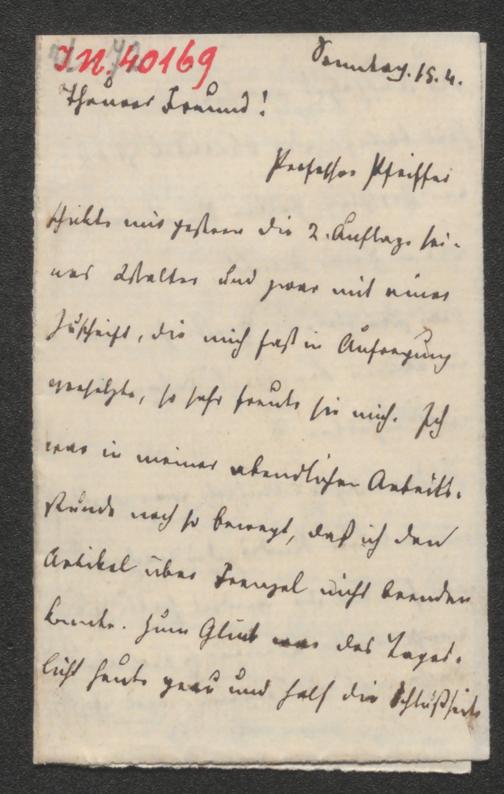 I.N. 40169
Sonntag. 15.4.
Theurer Freund!
Professor Pfeiffer
schickte mir gestern die 2. Auflage sei-
nes Walter und zwar mit einer
Zuschrift, die mich fast in Aufregung
versetzte, so sehr freute sie mich. Ich
war in meiner abendlichen Arbeits-
stunde noch so bewegt, daß ich den
Artikel über Frenzel nicht beenden
konnte. Zum Glück war das Tages-
licht heute grau und half die Schlußseite